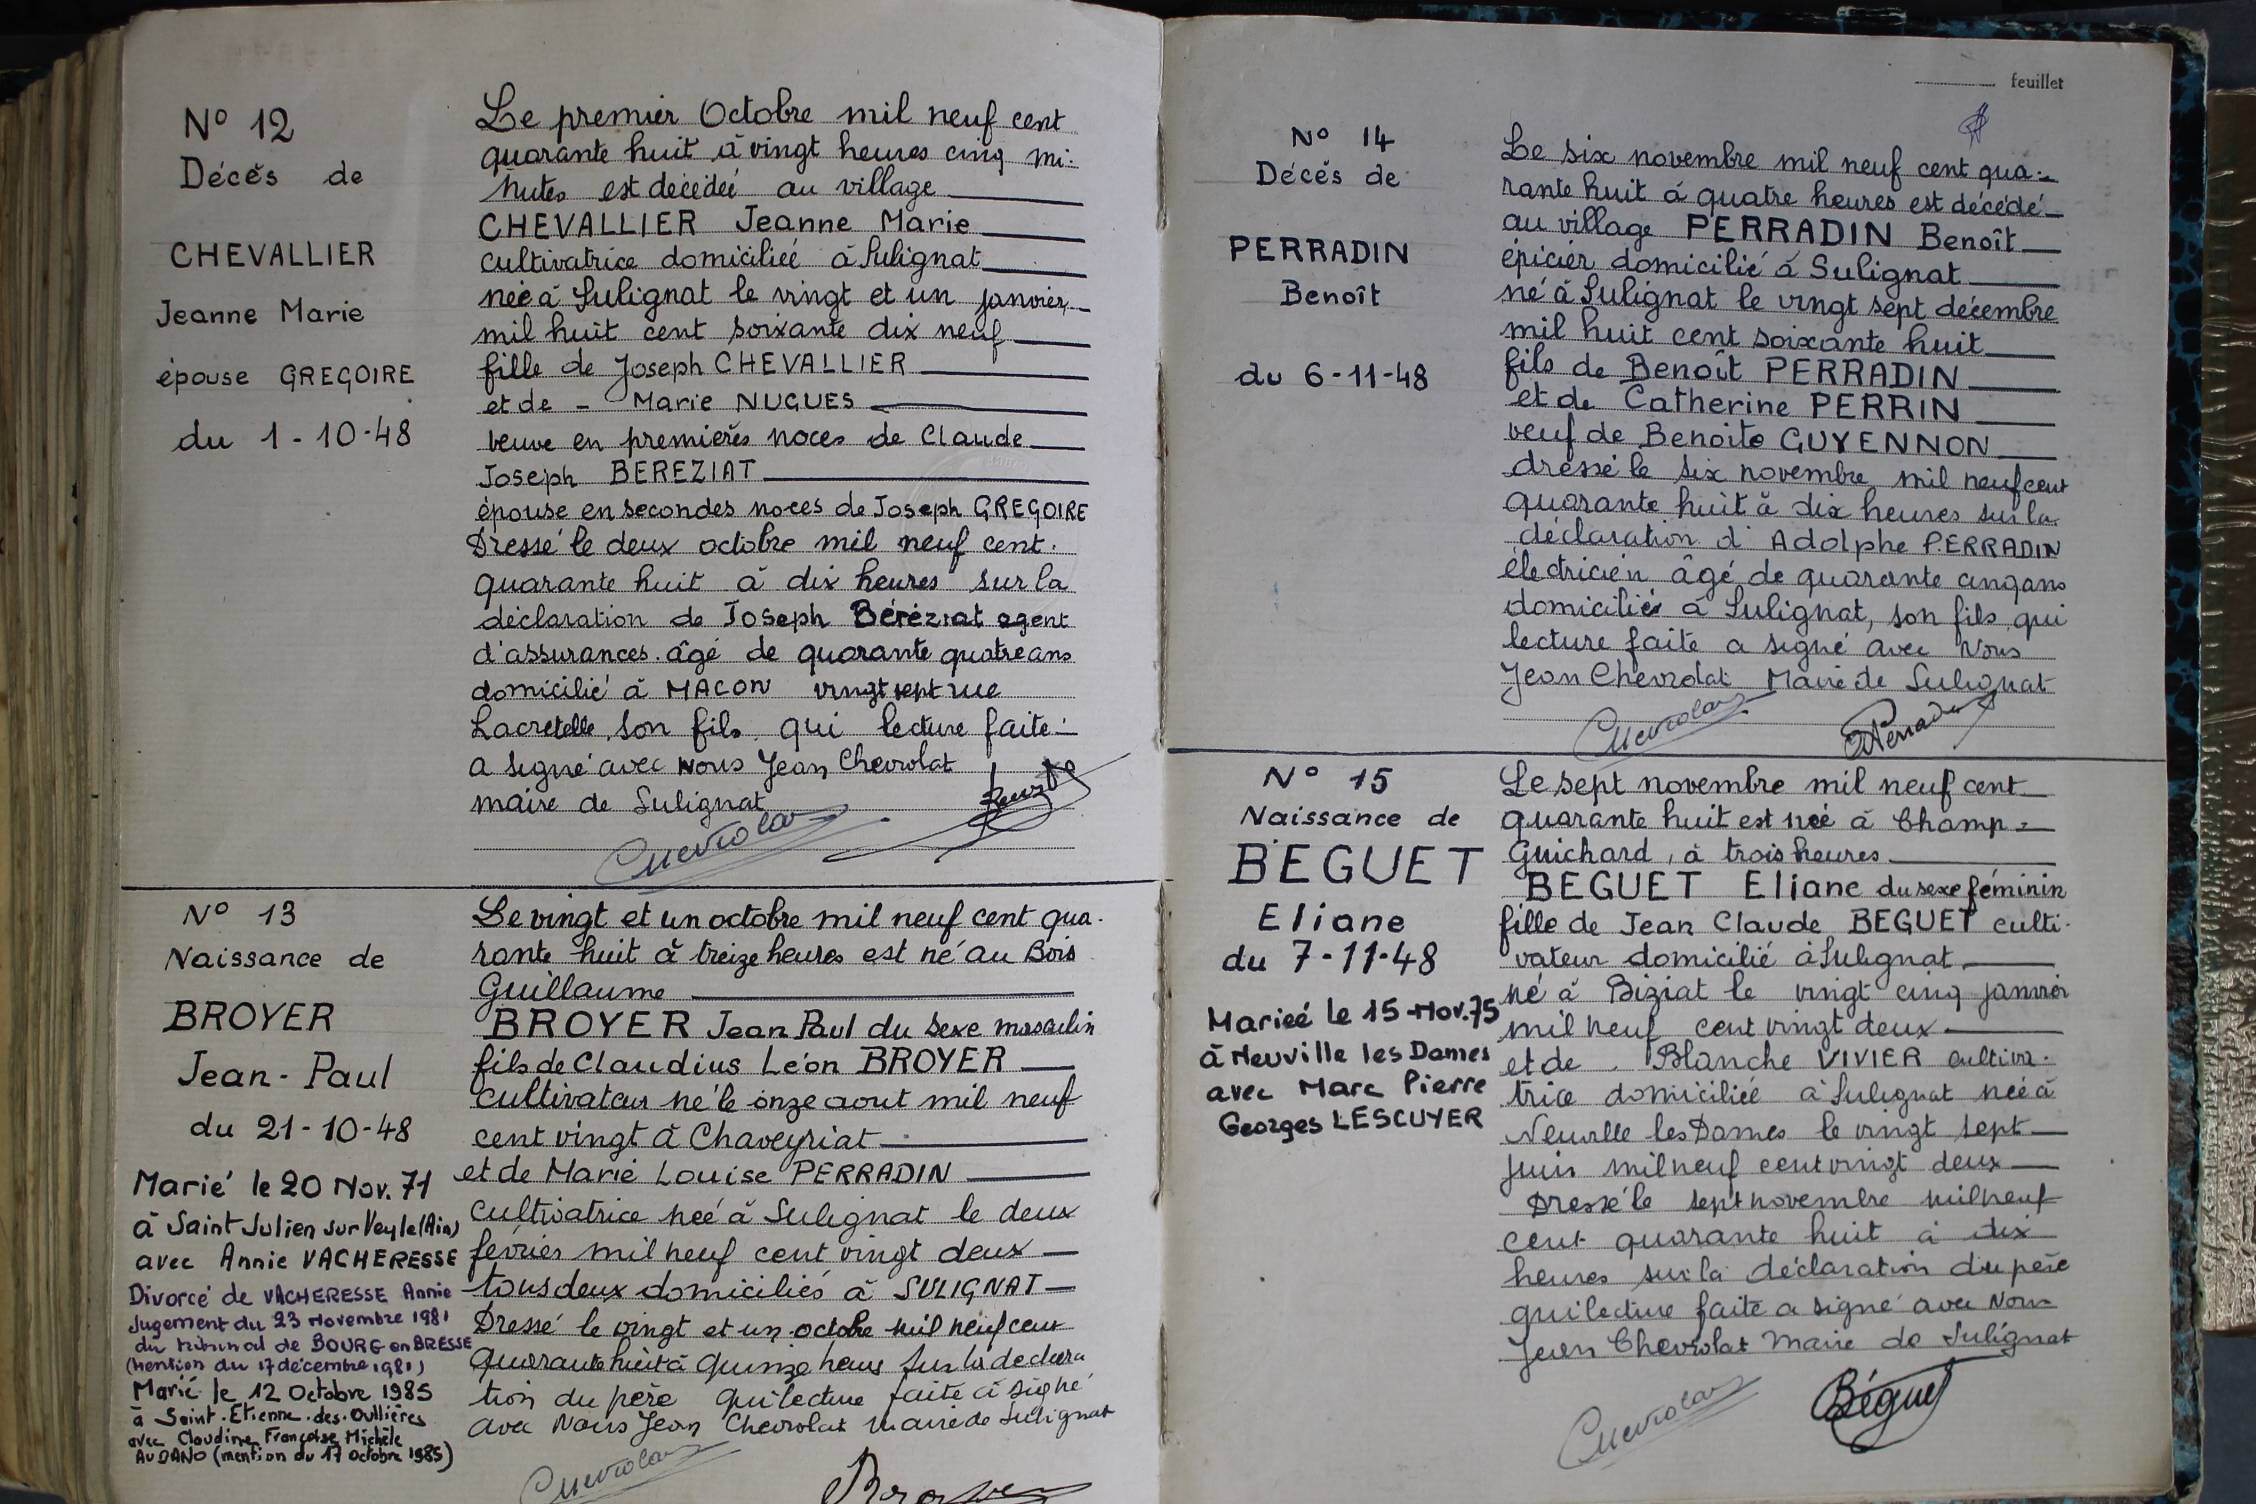 N° 12
Décès de
CHEVALLIER
Jeanne Marie
épouse GREGOIRE
du 1-10-48
Le premier Octobre mil neuf cent
quarante huit à vingt heures cinq mi-
nutes est décédée au village
CHEVALLIER Jeanne Marie
cultivatrice domiciliée à Sulignat
née à Sulignat le vingt et un janvier
mil huit cent soixante dix neuf
fille de Joseph CHEVALLIER
et de - Marie NUGUES
veuve en premières noces de Claude
Joseph BEREZIAT
épouse en secondes noces de Joseph GREGOIRE
Dressé le deux octobre mil neuf cent
quarante huit à dix heures sur la
déclaration de Joseph Béréziat agent
d'assurances âgé de quarante quatre ans
domicilié à MACON vingt sept rue
Lacretelle, son fils, qui lecture faite
a signé avec Nous Jean Chevrolat
maire de Sulignat
Chevrolat
N° 13
Naissance de
BROYER
Jean-Paul
du 21-10-48
Marié le 20 Nov. 71
à Saint Julien sur Veyle (Ain)
avec Annie VACHERESSE
Divorcé de VACHERESSE Annie
Jugement du 23 Novembre 1981
du tribunal de BOURG en BRESSE
(mention du 17 décembre 1981)
Marié le 12 Octobre 1985
à Saint.Etienne.des.Oullières
avec Claudine Françoise Michèle
AUDANO (mention du 17 Octobre 1985)
Le vingt et un octobre mil neuf cent qua-
rante huit à treize heures est né au Bois
Guillaume
BROYER Jean Paul du sexe masculin
fils de Claudius Léon BROYER
cultivateur né le onze aout mil neuf
cent vingt à Chaveyriat
et de Marie Louise PERRADIN
cultivatrice née à Sulignat le deux
février mil neuf cent vingt deux
tous deux domiciliés à SULIGNAT
Dressé le vingt et un octobre mil neuf cent
quarante huit à quinze heures sur la déclara
tion du père qui lecture faite a signé
avec Nous Jean Chevrolat maire de Sulignat
Chevrolat
Broyer
feuillet
N° 14
Décès de
PERRADIN
Benoît
du 6-11-48
Le six novembre mil neuf cent qua-
rante huit à quatre heures est décédé
au village PERRADIN Benoît
épicier domicilié à Sulignat
né à Sulignat le vingt sept décembre
mil huit cent soixante huit
fils de Benoît PERRADIN
et de Catherine PERRIN
veuf de Benoite GUYENNON
dressé le six novembre mil neuf cent
quarante huit à dix heures sur la
déclaration d'Adolphe PERRADIN
électricien âgé de quarante cinq ans
domicilié à Sulignat, son fils, qui
lecture faite a signé avec Nous
Jean Chevrolat Maire de Sulignat
Chevrolat
Perradin
N° 15
Naissance de
BEGUET
Eliane
du 7-11-48
Mariée le 15-Nov.75
à Neuville les Dames
avec Marc Pierre
Georges LESCUYER
Le sept novembre mil neuf cent
quarante huit est née à Champ-
Guichard, à trois heures
BEGUET Eliane du sexe féminin
fille de Jean Claude BEGUET culti-
vateur domicilié à Sulignat
né à Biziat le vingt cinq janvier
mil neuf cent vingt deux
et de Blanche VIVIER cultiva-
trice domiciliée à Sulignat née à
Neuville les Dames le vingt sept
juin mil neuf cent vingt deux
Dressé le sept novembre mil neuf
cent quarante huit à dix
heures sur la déclaration du père
qui lecture faite a signé avec Nous
Jean Chevrolat Maire de Sulignat
Chevrolat
Béguet